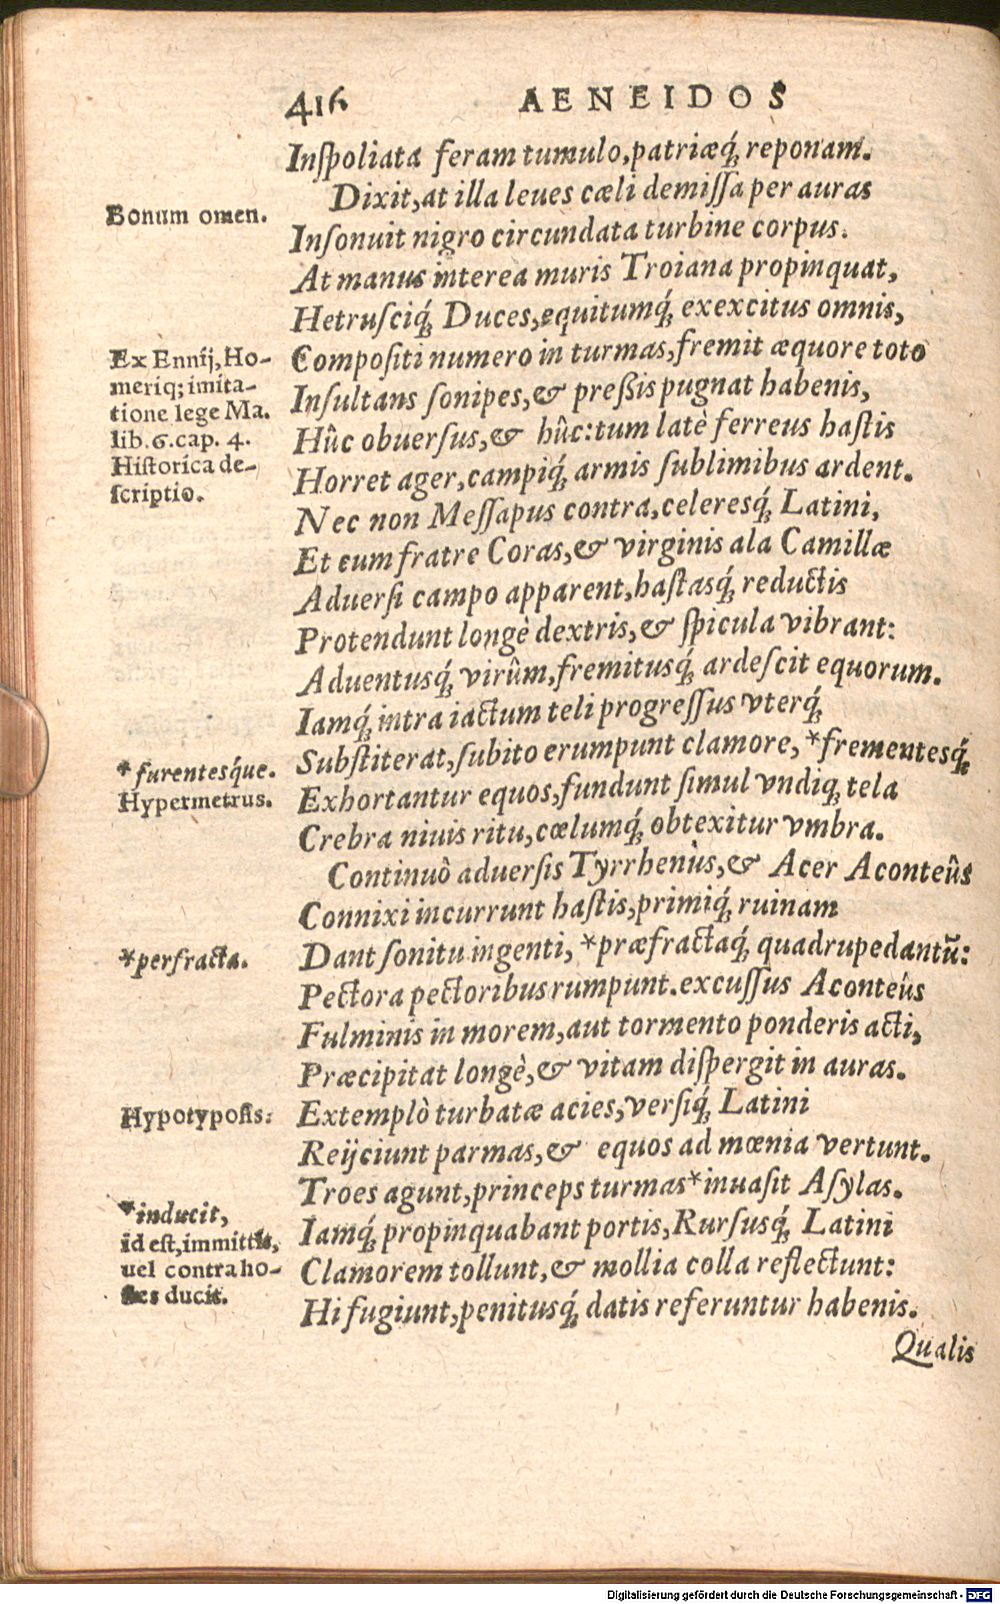 416 AENEIDOS
Inſpoliata feram tumulo, patriæq́; reponam.
Dixit, at illa leues cæli demiſſa per auras
Bonum omen.
Inſonuit nigro circundata turbine corpus.
At manus interea muris Troiana propinquat,
Hetruſciq́; Duces, equitumq́; exexcitus omnis,
Ex Ennij, Ho-
meriq; imita-
tione lege Ma.
lib. 6. cap. 4.
Hiſtorica de-
ſcriptio.
Compoſiti numero in turmas, fremit æquore toto
Inſultans ſonipes, & preßis pugnat habenis,
Hûc obuerſus, & hûc: tum latè ferreus haſtis
Horret ager, campiq́; armis ſublimibus ardent.
Nec non Meſſapus contra, celeresq́; Latini,
Et cum fratre Coras, & virginis ala Camillæ
Aduerſi campo apparent, haſtasq́; reductis
Protendunt longè dextris, & ſpicula vibrant:
Aduentusq́; virûm, fremitusq́; ardeſcit equorum.
Iamq́; intra iactum teli progreſſus vterq́;
Subſtiterat, ſubito erumpunt clamore, *frementesq́;
* furentesq́ue.
Hypermetrus.
Exhortantur equos, fundunt ſimul vndiq; tela
Crebra niuis ritu, cœlumq́; obtexitur vmbra.
Continuò aduerſis Tyrrhenùs, & Acer Aconteûs
Connixi incurrunt haſtis, primiq́; ruinam
Dant ſonitu ingenti, *præfractaq́; quadrupedantũ:
*perfracta.
Pectora pectoribus rumpunt. excuſſus Aconteûs
Fulminis in morem, aut tormento ponderis acti,
Præcipitat longè, & vitam diſpergit in auras.
Hypotypoſis:
Extemplò turbatæ acies, verſiq́; Latini
Reijciunt parmas, & equos ad mœnia vertunt.
Troes agunt, princeps turmas *inuaſit Aſylas.
*inducit,
id eſt, immittit,
uel contra ho-
ſtes ducit.
Iamq́; propinquabant portis, Rurſusq́; Latini
Clamorem tollunt, & mollia colla reflectunt:
Hi fugiunt, penitusq́; datis referuntur habenis.
Qualis
Digitalisierung gefördert durch die Deutsche Forschungsgemeinschaft - DFG